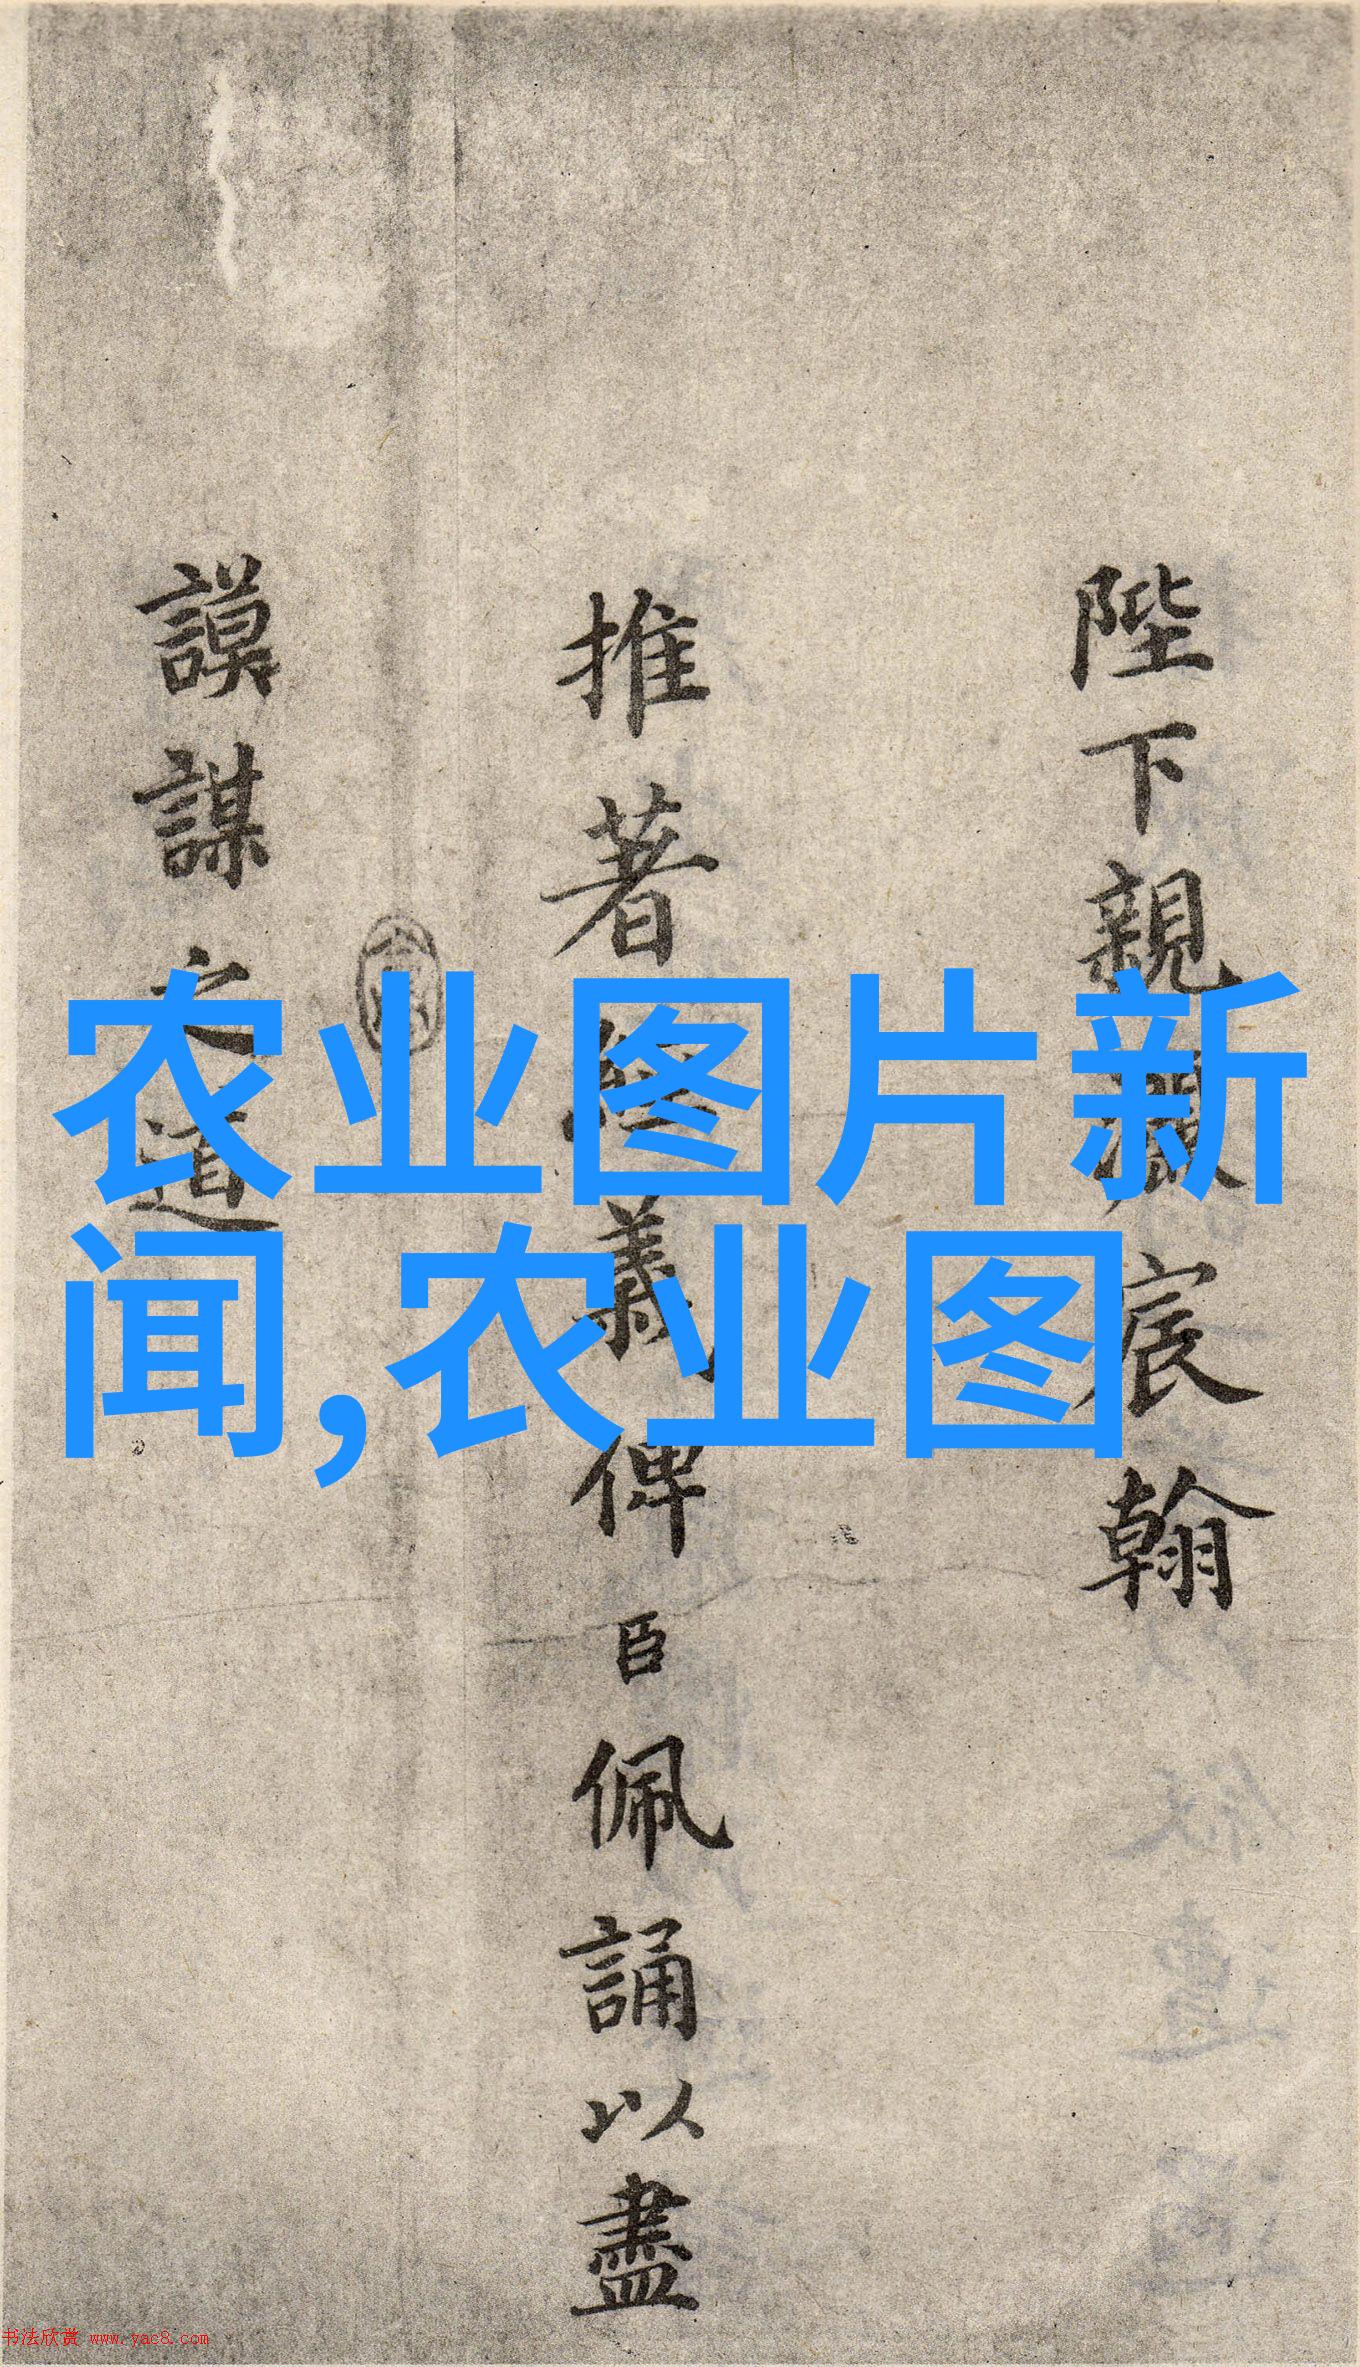 陛下親御宸翰
推著經義俾臣佩誦以盡
謨謀之道
农业图片新
闻,农业图
书法欣赏 www.yac8.com